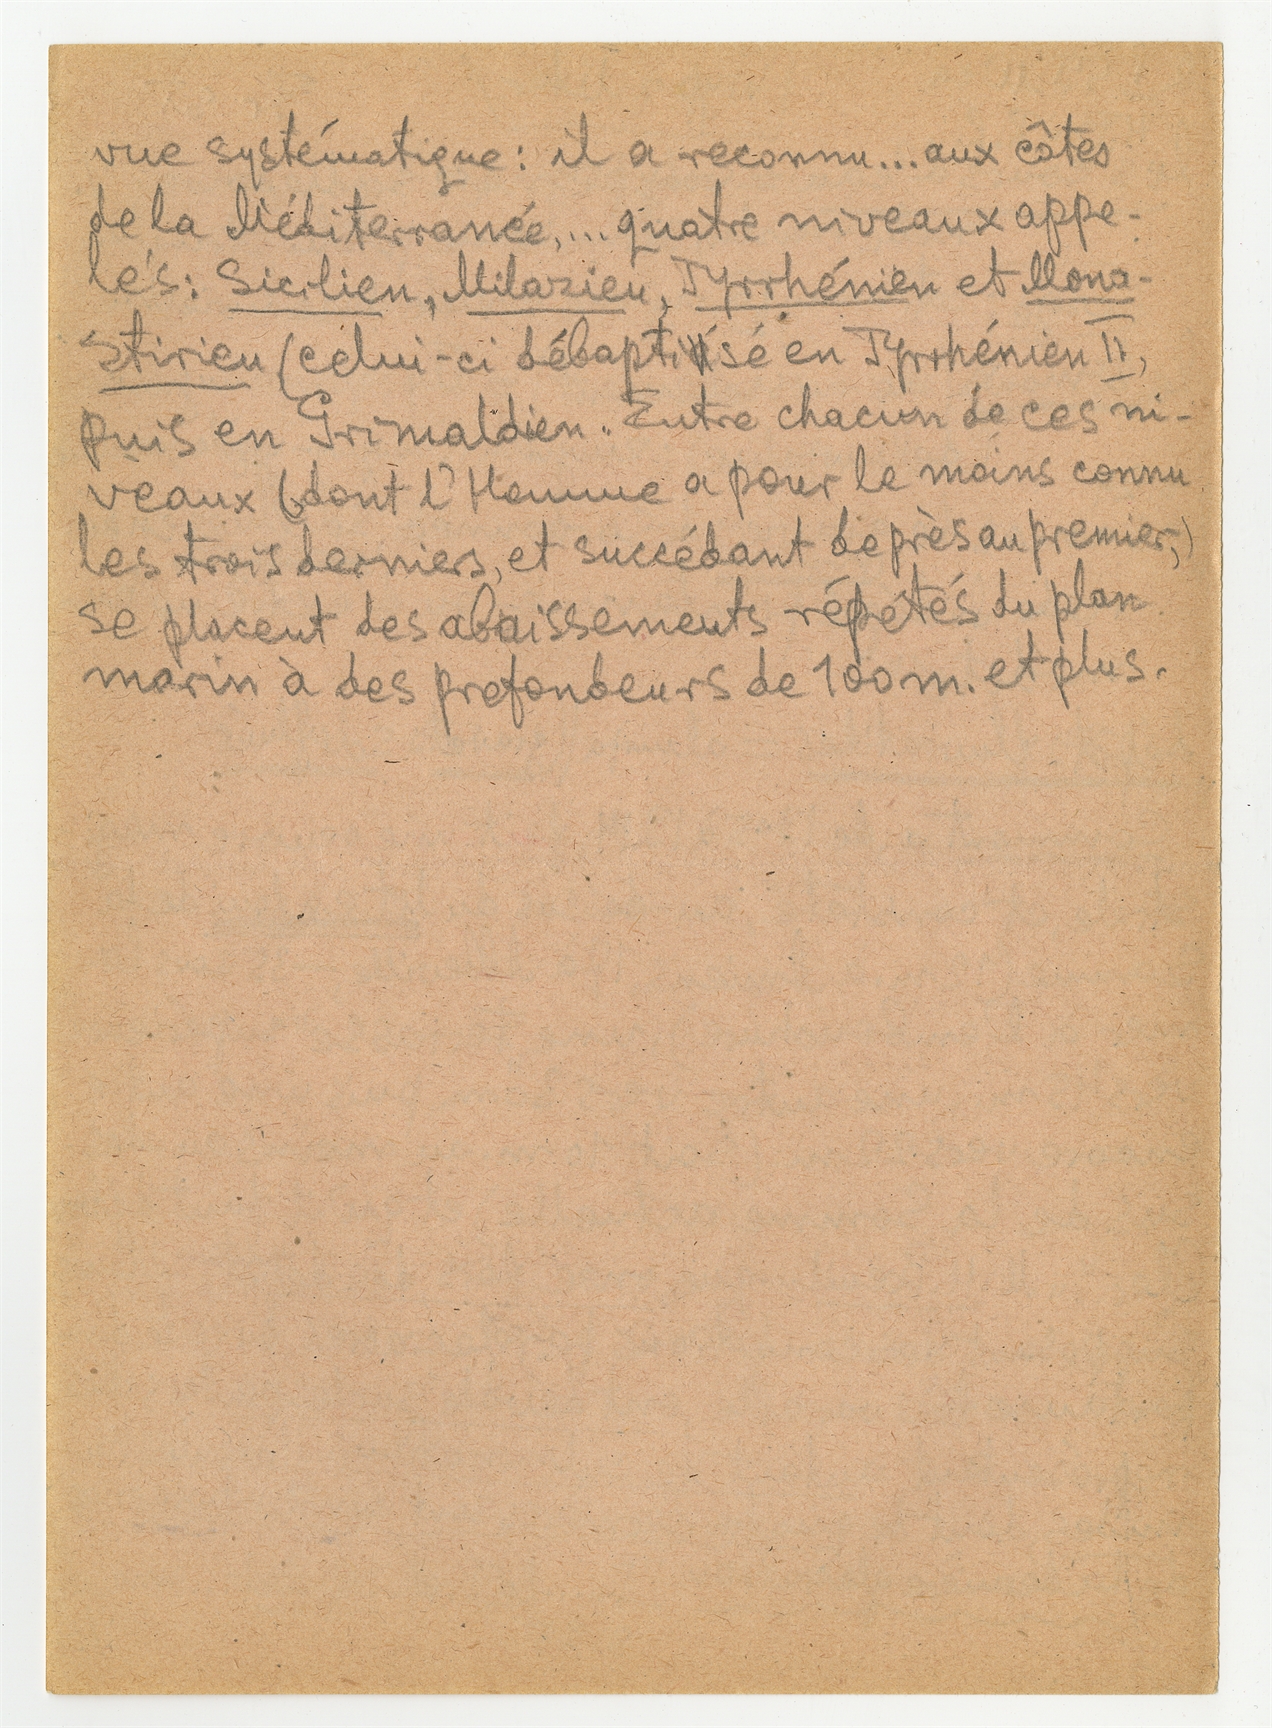 vue systématique: il a reconnu... aux côtes
de la Méditerranée,... quatre niveaux appe-
lés: Sicilien, Milazien, Tyrrhénien et Mona-
stirien (celui-ci débaptisé en Tyrrhénien II,
puis en Grimaldien. Entre chacun de ces ni-
veaux (dont l'Homme a pour le moins connu
les trois derniers, et succédant de près au premier,)
se placent des abaissements répétés du plan
marin à des profondeurs de 100 m. et plus.